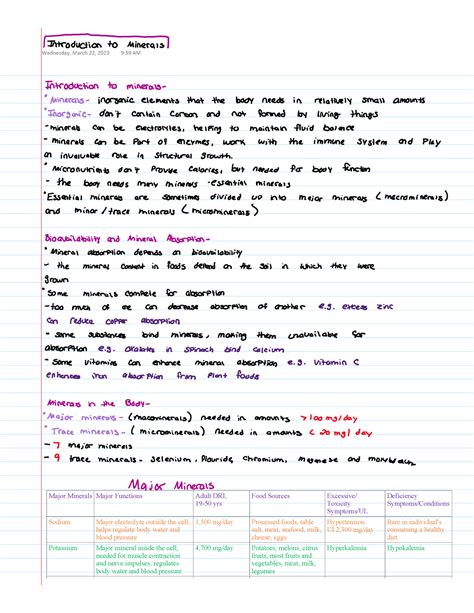 Introduction to Minerals
Wednesday, March 22, 2023 9:59 AM
Introduction to minerals-
*Minerals- inorganic elements that the body needs in relatively small amounts
*Inorganic- don't contain carbon and not formed by living things
-minerals can be electrolytes, helping to maintain fluid balance
- minerals can be part of enzymes, work with the immune system and play
an invaluable role in structural growth.
*Micronutrients don't provide calories, but needed for body function
- the body needs many minerals -essential minerals
*Essential minerals are sometimes divided up into major minerals (macrominerals)
and minor/trace minerals (microminerals)
Bioavailability and Mineral Absorption-
*Mineral absorption depends on bioavailability
- the mineral content in foods depend on the soil in which they were
grown
*Some minerals compete for absorption
-too much of one can decrease absorption of another e.g. excess zinc
can reduce copper absorption
- some substances bind minerals, making them unavailable for
absorption e.g. Oxalates in spinach bind calcium
- Some vitamins can enhance mineral absorption e.g. Vitamin C
enhances iron absorption from plant foods
Minerals in the Body-
*Major minerals- (macrominerals) needed in amounts >100 mg/day
*Trace minerals- (microminerals) needed in amounts < 20 mg/day
- 7 major minerals
- 9 trace minerals- Selenium, Flouride, Chromium, and
Major Minerals
Major Minerals Major Functions Adult DRI, 19-50 yrs Food Sources Excessive/ Toxicity Symptoms/UL Deficiency Symptoms/Conditions
Sodium Major electrolyte outside the cell, helps regulate body water and blood pressure 1,500 mg/day Processed foods, table salt, meat, seafood, milk, cheese, eggs Hypertension UI 2,300 mg/day Rare in individual's consuming a healthy diet
Potassium Major mineral inside the cell, needed for muscle contraction and nerve impulses; regulates body water and blood pressure 4,700 mg/day Potatoes, melons, citrus fruits, most fruits and vegetables, meat, milk, legumes Hyperkalemia Hypokalemia